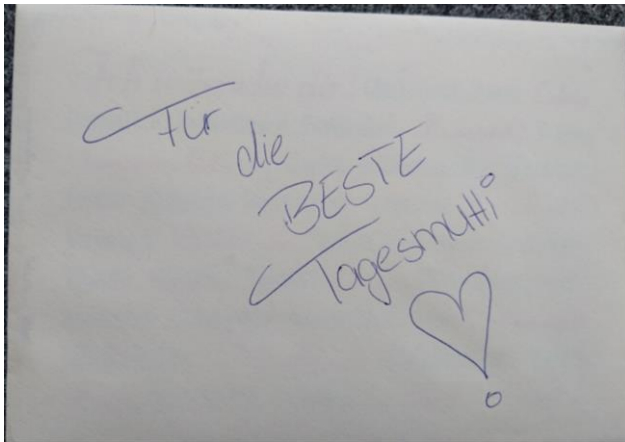 Für
die
BESTE
Tagesmutti